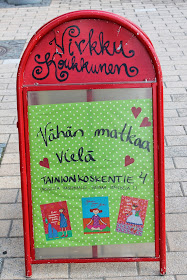 Virkku
Koukkunen
Vähän matkaa
vielä
TAINIONKOSKENTIE 4